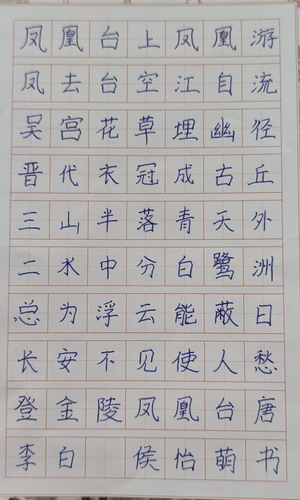 凤凰台上凤凰游
凤去台空江自流
吴宫花草埋幽径
晋代衣冠成古丘
三山半落青天外
二水中分白鹭洲
总为浮云能蔽日
长安不见使人愁
登金陵凤凰台 唐
李白 侯怡萌书